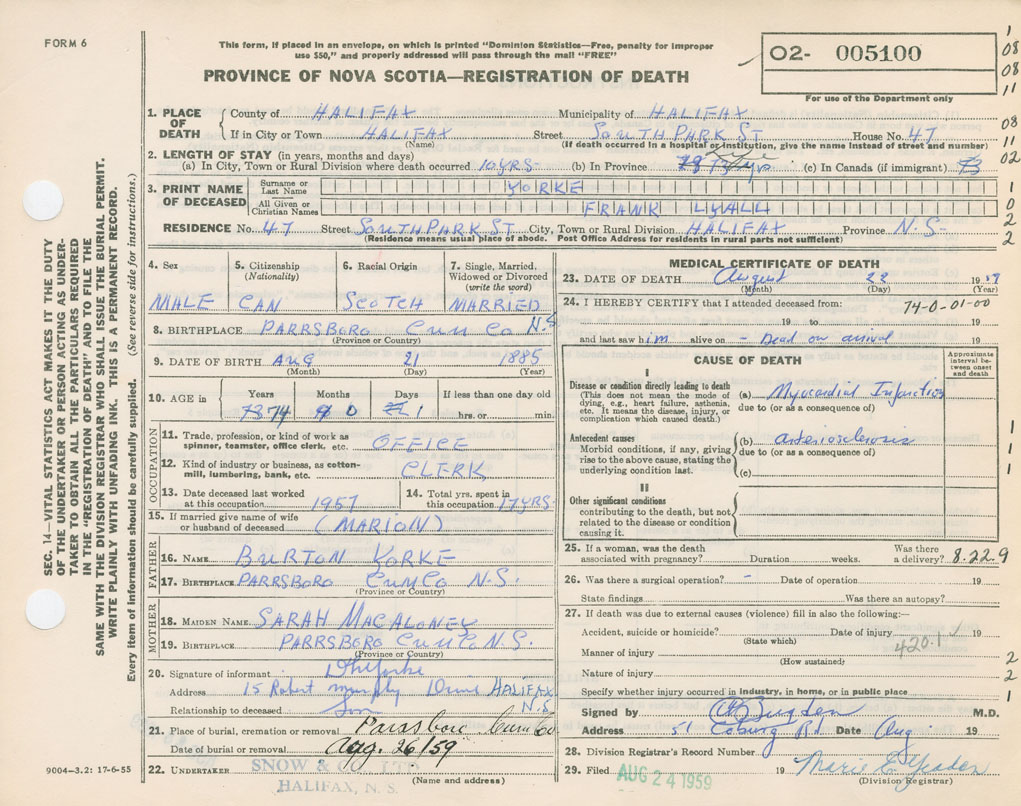 FORM 6
This form, if placed in an envelope, on which is printed "Dominion Statistics—Free, penalty for improper
use $50," and properly addressed will pass through the mail "FREE"
PROVINCE OF NOVA SCOTIA—REGISTRATION OF DEATH
02- 005100
For use of the Department only
1
08
08
11
08
11
02
1
0
2
2
SEC. 14—VITAL STATISTICS ACT MAKES IT THE DUTY
OF THE UNDERTAKER OR PERSON ACTING AS UNDER-
TAKER TO OBTAIN ALL THE PARTICULARS REQUIRED
IN THE "REGISTRATION OF DEATH" AND TO FILE THE
SAME WITH THE DIVISION REGISTRAR WHO SHALL ISSUE THE BURIAL PERMIT.
WRITE PLAINLY WITH UNFADING INK. THIS IS A PERMANENT RECORD.
Every item of information should be carefully supplied. (See reverse side for instructions.)
1. PLACE OF DEATH
County of HALIFAX Municipality of HALIFAX
If in City or Town HALIFAX Street SOUTH PARK ST House No. 47
(Name) (If death occurred in a hospital or institution, give the name instead of street and number)
2. LENGTH OF STAY (in years, months and days)
(a) In City, Town or Rural Division where death occurred 10 YRS- (b) In Province Life (c) In Canada (if immigrant)
3. PRINT NAME OF DECEASED
Surname or Last Name YORKE
All Given or Christian Names FRANK LYALL
RESIDENCE No. 47 Street SOUTH PARK ST City, Town or Rural Division HALIFAX Province N.S-
(Residence means usual place of abode. Post Office Address for residents in rural parts not sufficient)
4. Sex
MALE
5. Citizenship
(Nationality)
CAN
6. Racial Origin
SCOTCH
7. Single, Married,
Widowed or Divorced
(write the word)
MARRIED
8. BIRTHPLACE PARRSBORO CUM CO N.S
(Province or Country)
9. DATE OF BIRTH AUG 21 1885
(Month) (Day) (Year)
10. AGE in Years Months Days If less than one day old
73 74 0 1 hrs. or min.
OCCUPATION
11. Trade, profession, or kind of work as
spinner, teamster, office clerk, etc. OFFICE
12. Kind of industry or business, as cotton-
mill, lumbering, bank, etc. CLERK
13. Date deceased last worked
at this occupation 1957
14. Total yrs. spent in
this occupation 17 YRS
15. If married give name of wife
or husband of deceased (MARION)
FATHER
16. NAME BURTON YORKE
17. BIRTHPLACE PARRSBORO CUM CO N.S.
(Province or Country)
MOTHER
18. MAIDEN NAME SARAH MACALONEY
19. BIRTHPLACE PARRSBORO CUM CO N.S.
(Province or Country)
20. Signature of informant
Address 15 Robert Murphy Drive HALIFAX
N.S.
Relationship to deceased Son
21. Place of burial, cremation or removal Parrsboro Cum Co
Date of burial or removal Aug. 26/59
22. UNDERTAKER SNOW & CO. LTD
HALIFAX, N. S.
(Name and address)
9004—3.2: 17-6-55
MEDICAL CERTIFICATE OF DEATH
23. DATE OF DEATH August 22 1959
(Month) (Day) (Year)
24. I HEREBY CERTIFY that I attended deceased from: 74-0-01-00
19 to 19
and last saw him alive on - Dead on arrival 19
CAUSE OF DEATH
Approximate
interval be-
tween onset
and death
I
Disease or condition directly leading to death
(This does not mean the mode of
dying, e.g., heart failure, asthenia,
etc. It means the disease, injury, or
complication which caused death.)
(a) Myocardial Infarction
due to (or as a consequence of)
Antecedent causes
Morbid conditions, if any, giving
rise to the above cause, stating the
underlying condition last.
(b) arteriosclerosis
due to (or as a consequence of)
(c)
II
Other significant conditions
contributing to the death, but not
related to the disease or condition
causing it.
1
1
1
25. If a woman, was the death
associated with pregnancy? Duration weeks. Was there
a delivery? 8.22.9
26. Was there a surgical operation? - Date of operation 19
State findings Was there an autopsy?
27. If death was due to external causes (violence) fill in also the following:—
Accident, suicide or homicide? Date of injury 19
(State which)
420.1
Manner of injury
(How sustained)
Nature of injury
2
2
1
Specify whether injury occurred in industry, in home, or in public place
Signed by Bugden M.D.
Address 51 Coburg Rd. Date Aug 19
28. Division Registrar's Record Number
29. Filed AUG 24 1959 19 Marie E.
(Division Registrar)